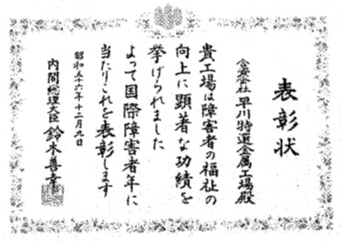 表彰状
合資会社早川特選金属工場殿
貴工場は障害者の福祉の
向上に顕著な功績を
挙げられました
よって国際障害者年に
当たりこれを表彰します
昭和五十六年十二月九日
内閣総理大臣 鈴木善幸